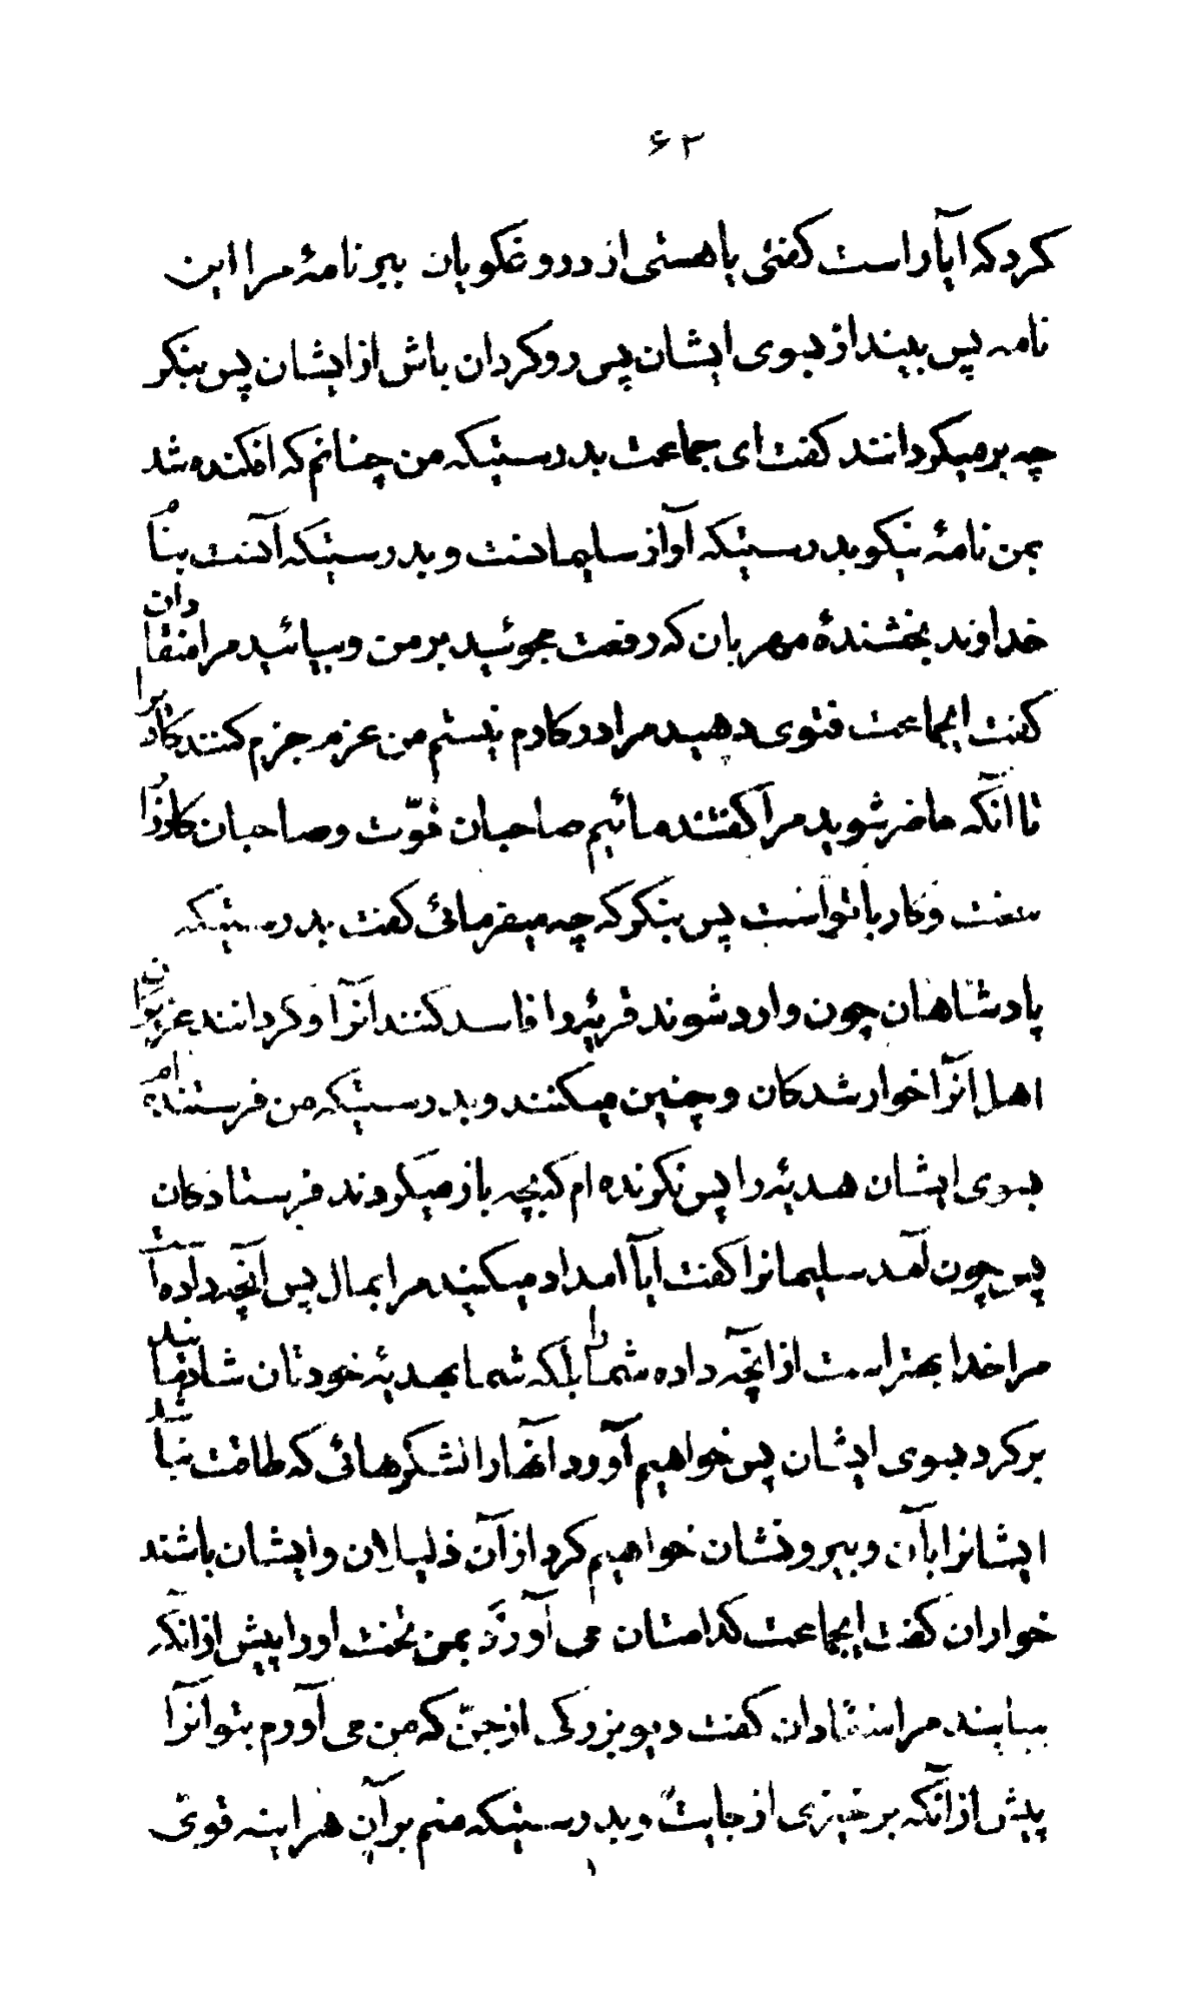 ۶۲
کرد که ایا راست کفتی یا هستی از دروغکویان ببر نامهٔ مرا این
نامه پس بینداز بسوی ایشان پس روکردان باش از ایشان پس بنکر
چه برمیکردانند کفت ای جماعت بدرستیکه من چنانم که افکنده شد
بمن نامهٔ نیکو بدرستیکه آواز سلیمانست و بدرستیکه آنست بنام
خداوند بخشندهٔ مهربان که رفعت مجوئید بر من و بیائید مرا منقادان
کفت ایجماعت فتوی دهید مرا در کارم نیستم من عزم جزم کننده کاریرا
تا آنکه حاضر شوید مرا کفتند مائیم صاحبان قوّت و صاحبان کارزار
سخت و کار با تو است پس بنکر که چه میفرمائی کفت بدرستیکه
پادشاهان چون وارد شوند قریهٔ را فاسد کنند انرا و کردانند عزیزان
اهل انرا خوار شدکان و چنین میکنند و بدرستیکه من فرستنده‌ام
بسوی ایشان هدیهٔ را پس نکرنده ام که بچه باز میکردند فرستادکان
پس چون آمد سلیمانرا کفت ایا امداد میکنید مرا بمال پس آنچه داده است
مرا خدا بهتر است از انچه داده شما را بلکه شما بهدیهٔ خودتان شادمانید
برکرد بسوی ایشان پس خواهیم آورد آنها را لشکرهائی که طاقت نباشد
ایشانرا بآن و بیرونشان خواهیم کرد از آن ذلیلان و ایشان باشند
خواران کفت ایجماعت کدامتان می آورد بمن تخت او را پیش از انکه
بیایند مرا منقادان کفت دیو بزرکی از جنّ که من می آورم بتو انرا
پیش از آنکه برخیزی از جایت و بدرستیکه منم بر آن هر اینه قوی